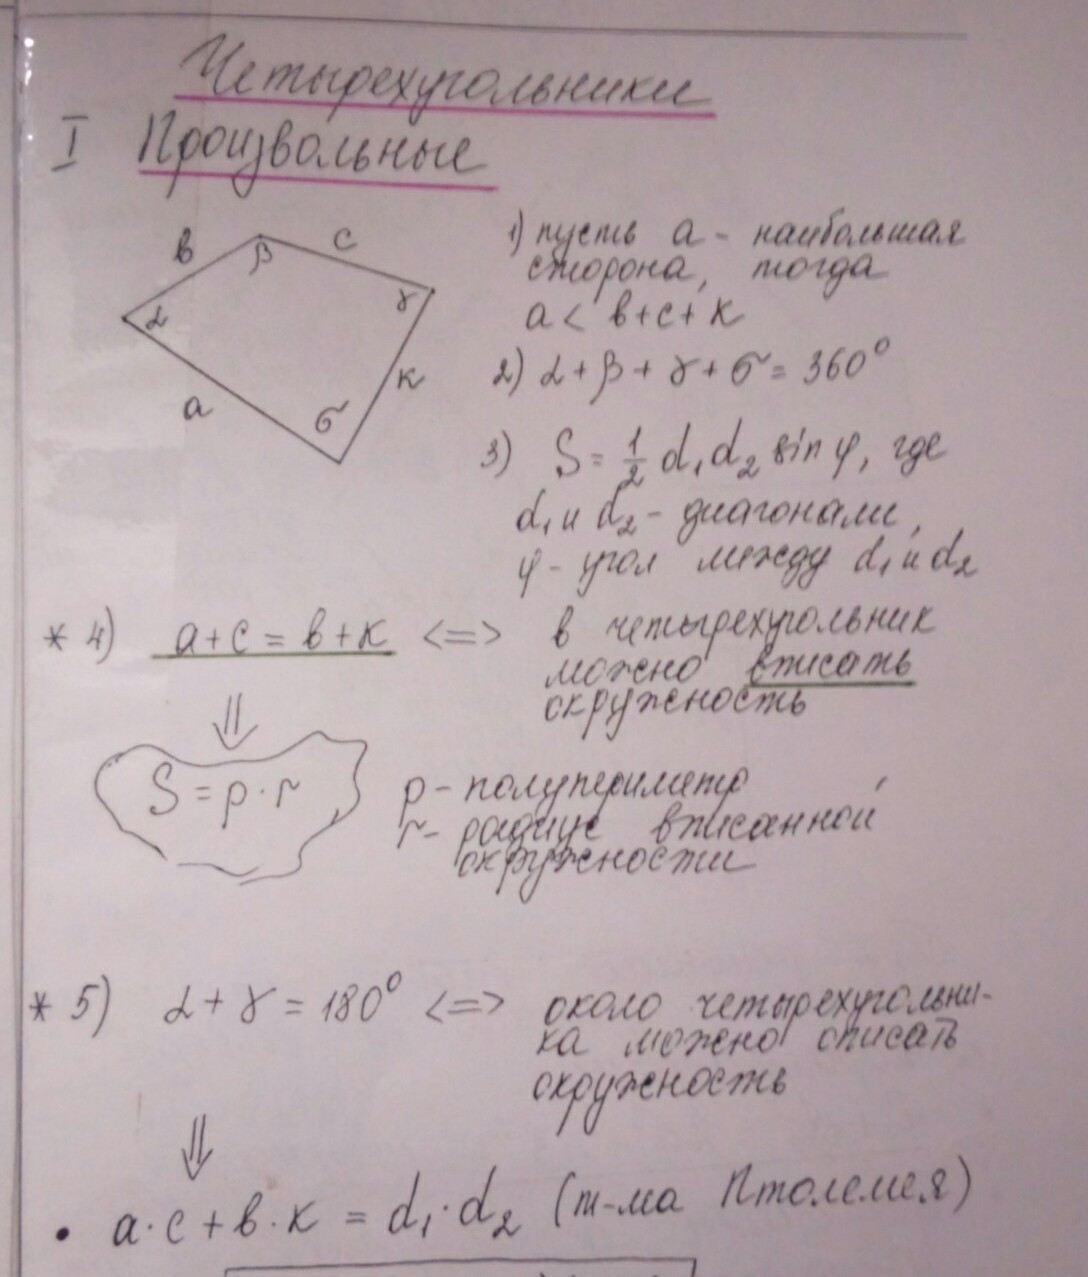 Четырехугольники
I Произвольные
в
β
с
α
γ
к
а
σ
1) пусть а - наибольшая
сторона, тогда
а < в+с+к
2) α+β+γ+σ = 360°
3) S = 1/2 d₁d₂ sin φ, где
d₁ и d₂ - диагонали,
φ - угол между d₁ и d₂
* 4) а+с = в+к <=> в четырехугольник
можно вписать
окружность
⇓
S = p·r
p - полупериметр
r - радиус вписанной
окружности
* 5) α+γ = 180° <=> около четырехугольни-
ка можно описать
окружность
⇓
• а·с + в·к = d₁·d₂ (т-ма Птолемея)